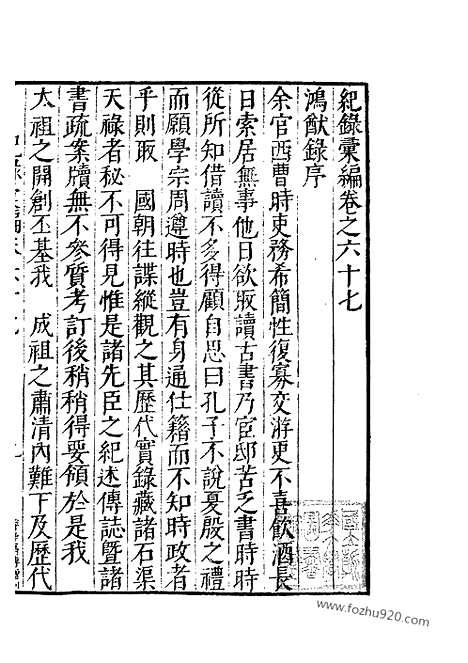 紀錄彙編卷之六十七
鴻猷錄序
余官西曹時吏務希簡性復寡交游更不喜飲酒長
日索居無事他日欲取讀古書乃官邸苦乏書時時
從所知借讀不多得顧自思曰孔子不說夏殷之禮
而願學宗周遵時也豈有身通仕籍而不知時政者
乎則取 國朝往諜縱觀之其歷代實錄藏諸石渠
天祿者秘不可得見惟是諸先臣之紀述傳誌暨諸
書疏案牘無不參質考訂後稍稍得要領於是我
太祖之開創丕基我 成祖之肅清內難下及歷代
www.fozhu920.com